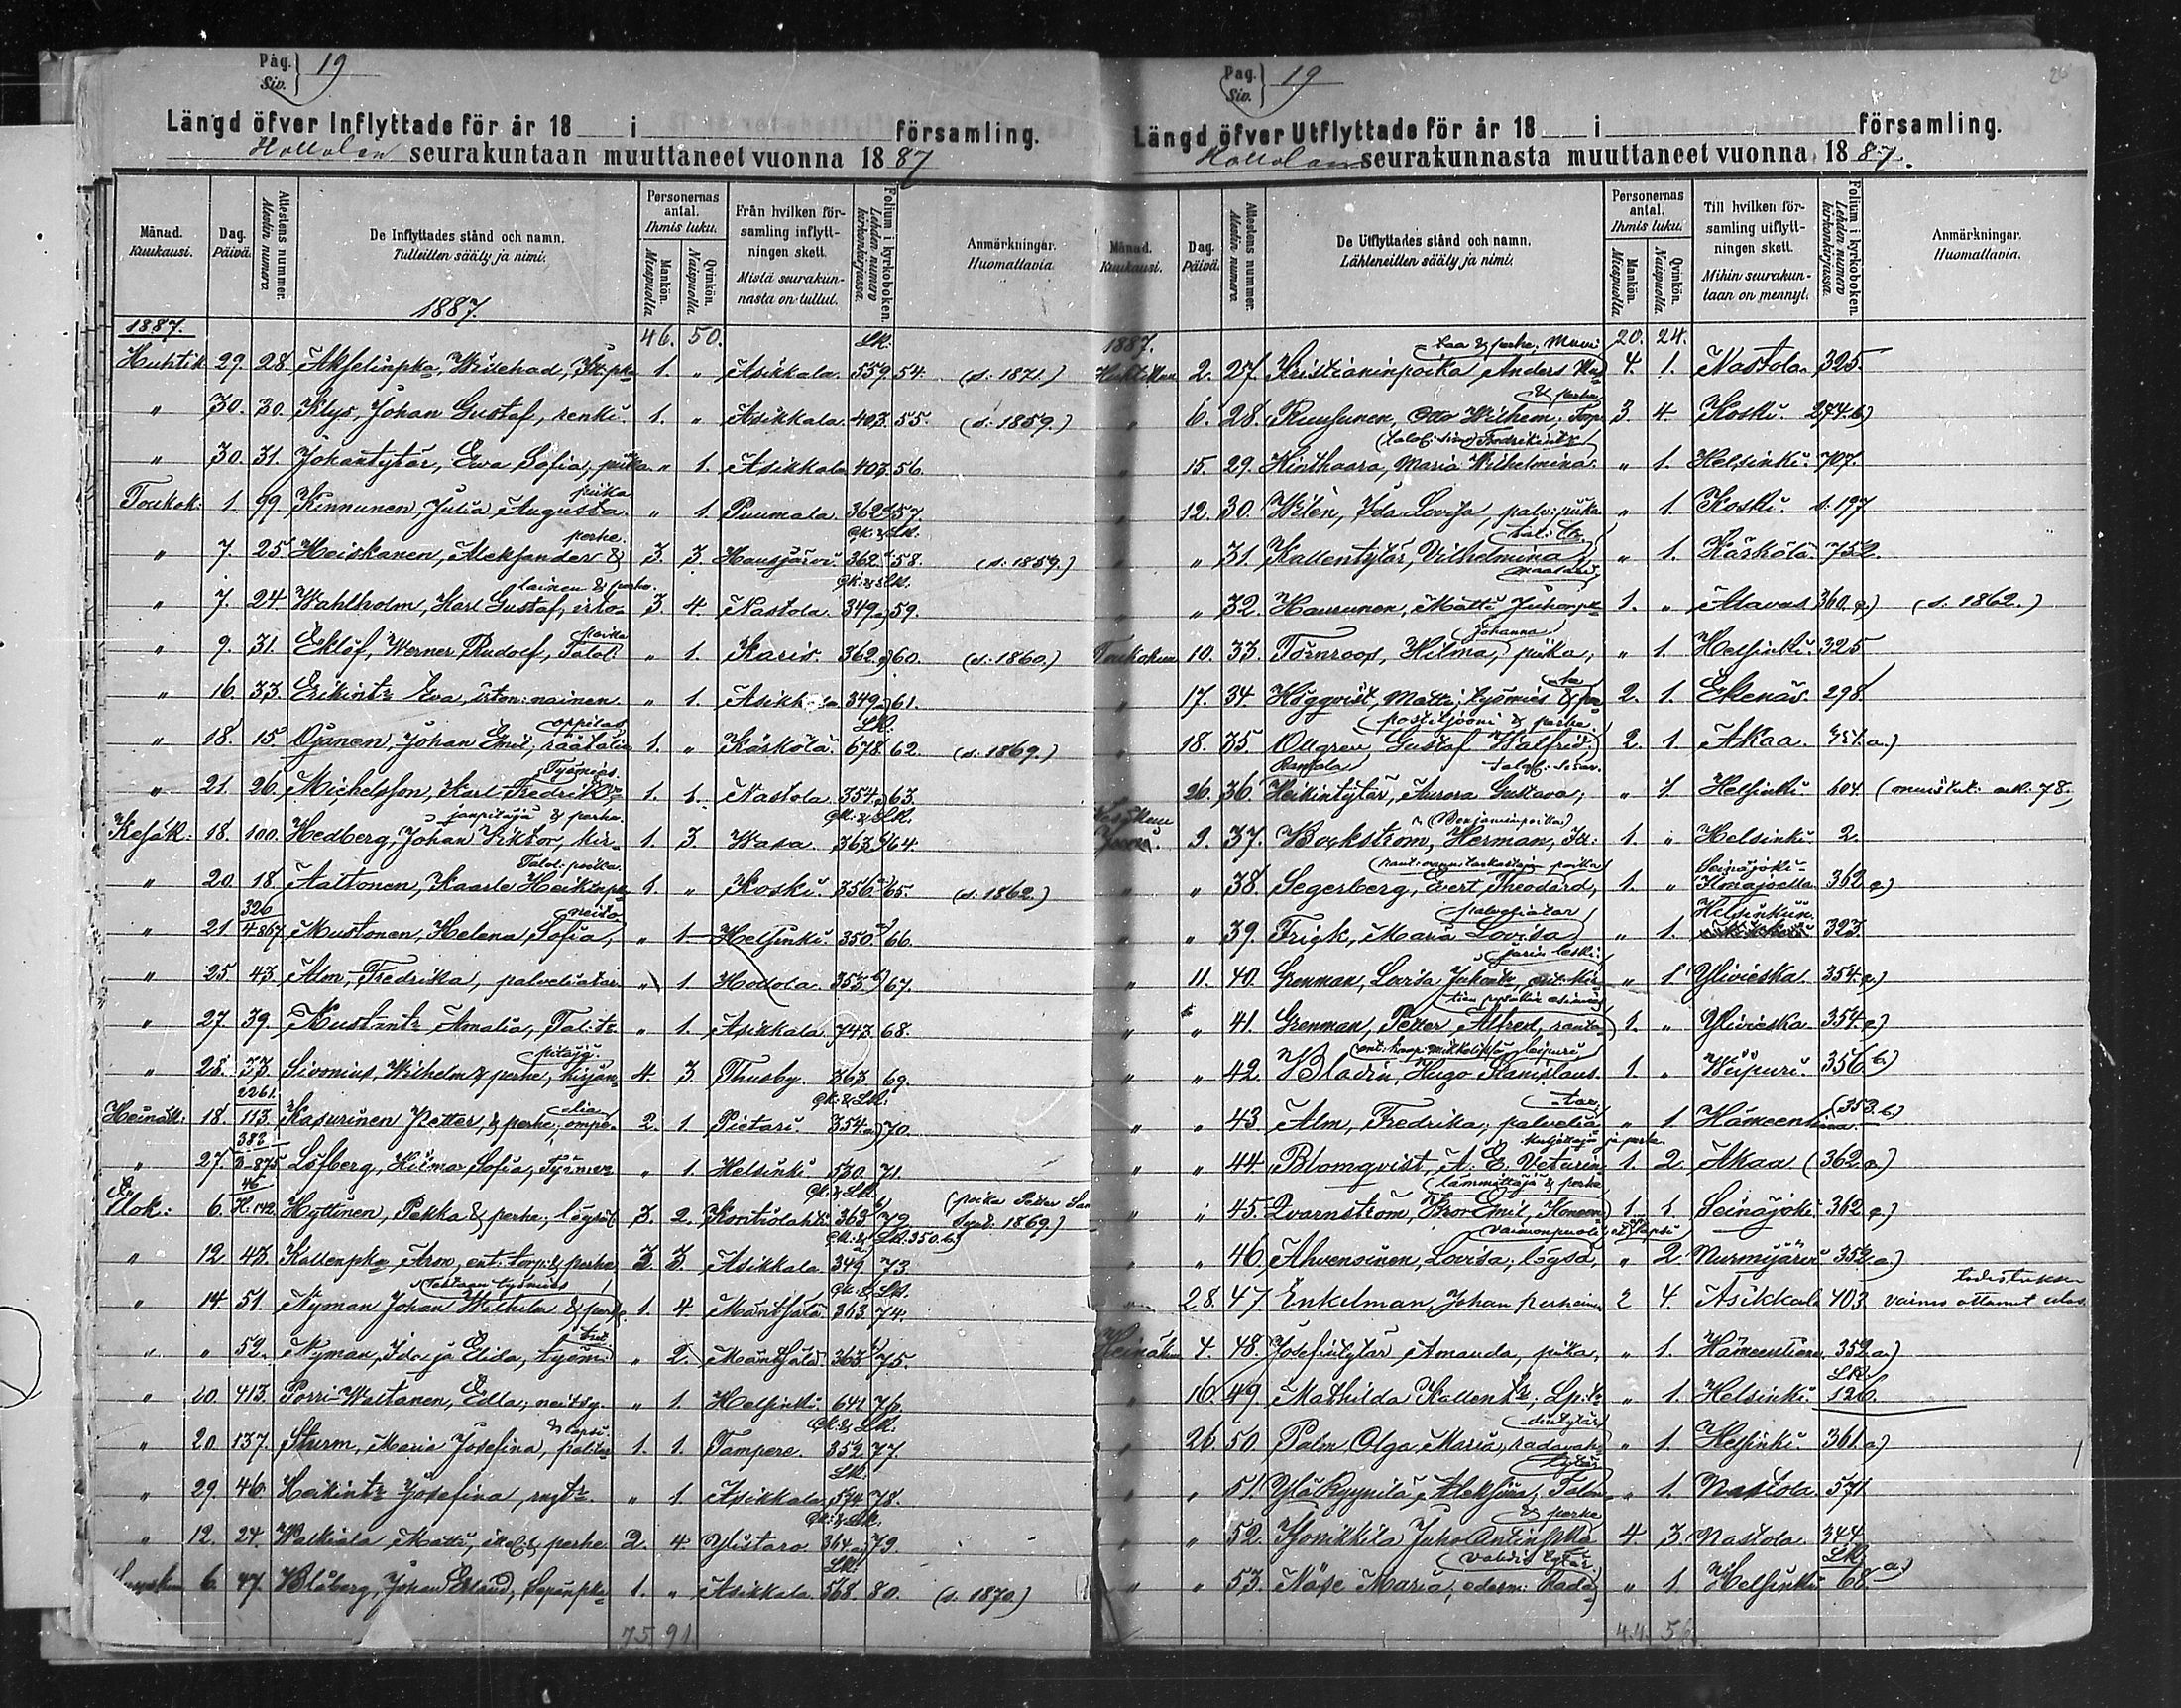 Påg. Siv. 19
Längd öfver Inflyttade för år 18 i församling.
Hollolan seurakuntaan muuttaneet vuonna 1887
Månad. Kuukausi.
Dag. Päivä.
Attestens nummer. Alestin numero
De Inflyttades stånd och namn. Tulleitten sääty ja nimi.
Personernas antal. Ihmis luku.
Mankön. Miespuolia
Qvinkön. Naispuolia
Från hvilken församling inflyttningen skett. Mistä seurakunnasta on tullut.
Folium i kyrkoboken. Lehden numero kirkonkirjassa.
Anmärkningar. Huomattavia.
1887.
1887. 46. 50. LK.
Huhtik. 29. 28. Akselinpka, Asikkala. 559. 54. (s. 1871.)
" 30. 30. Klys, Johan Gustaf, renki. 1. " Asikkala. 403. 55. (s. 1859.)
" 30. 31. Johantytär, Ewa Sofia, piika " 1. Asikkala 403. 56.
Toukok. 1. 99. Kinnunen, Julia Augusta. piika " 1. Puumala. 362 57.
" 7. 25. Heiskanen, Aleksander & perhe. 3. 3. Hausjärvi. 362 58. (s. 1859.)
" 7. 24. Wahlholm, Karl Gustaf, irtolainen & perhe. 3. 4. Nastola. 349 59.
" 9. 31. Eklöf, Werner Rudolf, Talol. poika " 1. Karis. 362 60. (s. 1860.)
" 16. 33. Erikintr Eva, irton: nainen " 1. Asikkala 349 61.
" 18. 15. Ojanen, Johan Emil, räätälin oppilas 1. " Kärkölä. 678 62. (s. 1869.)
" 21. 26. Michelsson, Karl Fredrik Työmies. 1. 1. Nastola. 354 63.
Kesäk. 18. 100. Hedberg, Johan Viktor, kirjanpitäjä & perhe. 1. 3. Wasa. 363 64.
" 20. 18 Aaltonen, Kaarle Heikinpka Talol. poika. 1. " Koski. 356 65. (s. 1862.)
" 21. 326 4867 Mustonen, Helena Sofia, neito " 1. Helsinki. 350 66.
" 25. 43. Alm, Fredrika, palveliatar " 1. Hollola. 353 67.
" 27. 39. Kustintr Amalia, Tal:tr " 1. Asikkala. 743. 68.
" 28. 33 Sivonius, Wilhelm & perhe, kirjanpitäjä. 4. 3. Thusby. 363 69.
Heinäk: 18. 2261 113. Kasurinen Petter, & perhe, ompelia 2. 1. Pietari. 354 a) 70.
" 27. 382 875 Löfberg, Hilma Sofia, " 1. Helsinki. 530. 71.
Elok: 6. 46 H. 142. Hyttinen, Pekka & perhe, 3. 2. Kontiolahti 363 72.
" 12. 43. Kallenpka, Aron, ent. torp: & perhe 3. 3. Asikkala 349 73.
" 14 51. Nyman Johan Wilhelm & perhe Tehtaan työmies 1. 4. Mäntsälä. 363 74.
" " 52. Nyman, Ida ja Elida, " 2. Mäntsälä 363 75.
" 20. 413. Porri-Waltanen, Edla, neitsy. " 1. Helsinki. 641 76.
" 20 137. Sturm, Maria Josefina, & lapsi 1. 1. Tampere. 352. 77.
" 29. 46. Heikintr Josefina, " 1. Asikkala 574 78.
" 12. 24. Walkiala Matti, & perhe 2. 4 Ylistaro. 364 79.
6. 47. Blåberg, Johan Erland, Sepänpka 1. " Asikkala. 568. 80. (s. 1870.)
75 91.
Pag. Siv. 19
Längd öfver Utflyttade för år 18 i församling.
Hollolan seurakunnasta muuttaneet vuonna 1887.
Månad. Kuukausi.
Dag. Päivä.
Attestens nummer. Alestin numero.
De Utflyttades stånd och namn. Lähteneitten sääty ja nimi.
Personernas antal. Ihmis luku.
Mankön. Miespuolia
Qvinkön. Naispuolia
Till hvilken församling utflyttningen skett. Mihin seurakuntaan on mennyt.
Folium i kyrkoboken. Lehden numero kirkonkirjassa.
Anmärkningar. Huomattavia.
1887. 20. 24.
Huhtikuu 2. 27. Kristianinpoika Anders 4. 1. Nastola. 325.
" 6. 28. Ruusunen, Otto Wilhem, Torp. & perhe 3 4. Koski. 274. b)
" 15. 29. Hinthaara, Maria Wilhelmina. " 1. Helsinki. 707.
" 12. 30. Wilén, Ida Lovisa, palv: piika " 1. Koski. s. 197
" " 31. Kallentytär, Vilhelmina " 1. Kärkölä. 752.
" " 32. Haurunen, Matti Juhonpka 1. " Alavus 360. a) (s. 1862.)
Toukokuu 10. 33. Törnroos, Hilma Johanna, piika, " 1. Helsinki. 325
" 17. 34. Högqvist, Matti, työmies & perhe 2. 1. Ekenäs. 298.
" 18. 35. Ollgren Gustaf Walfrid. postiljooni & perhe 2. 1. Akaa. 351. a.)
26. 36. Heikintytär, Aurora Gustava; " 1. Helsinki 604 (muistut: ark. 78.)
Kesäkuu 9. 37. Backström, Herman, (Benjaminpoika) 1. " Helsinki. 2.
" " 38. Segerberg, Evert Theodård, 1. " Seinäjoki- Ilmajoella. 362 a)
" " 39. Frigk, Maria Lovisa palveliatar " 1. Helsinkiin. 323.
" 11. 40. Grenman, Lovisa " 1 Ylivieska. 354 a.)
" " 41. Grenman, Petter Alfred, 1. " Ylivieska. 354 a)
" " 42. Bladin, Hugo Stanislaus. 1. " Wiipuri. 356 b.)
" " 43. Alm, Fredrika, palveliatar " 1. Hämeenlinna. (353. b.)
" " 44. Blomqvist, A. E. Veturinkuljettaja ja perhe. 1. 2. Akaa (362 a)
" " 45. Qvarnström, Emil, Koneenlämmittäjä & perhe 1. 1. Seinäjoki. 362 a)
" " 46. Ahvenainen, Lovisa, " 2. Nurmijärvi 352. a)
" 28. 47. Enkelman, Johan perheineen 2 4. Asikkala 403
Heinäkuu 4. 48. Josefintytär Amanda, piika, " 1. Hämeenlinna. 352 a)
" 16. 49. Mathilda Kallentr, " 1. Helsinki. LK. 126.
" 26. 50. Palm, Olga Maria, " 1. Helsinki. 361 a)
" " 51. Ylä Ryynilä, Aleksandra, " 1. Nastola. 571
" " 52. Honikkila Juho Antinpka & perhe 4. 3 Nastola. 344
" " 53. Näse Maria, " 1. Helsinki LK. 68. a.)
44. 56.